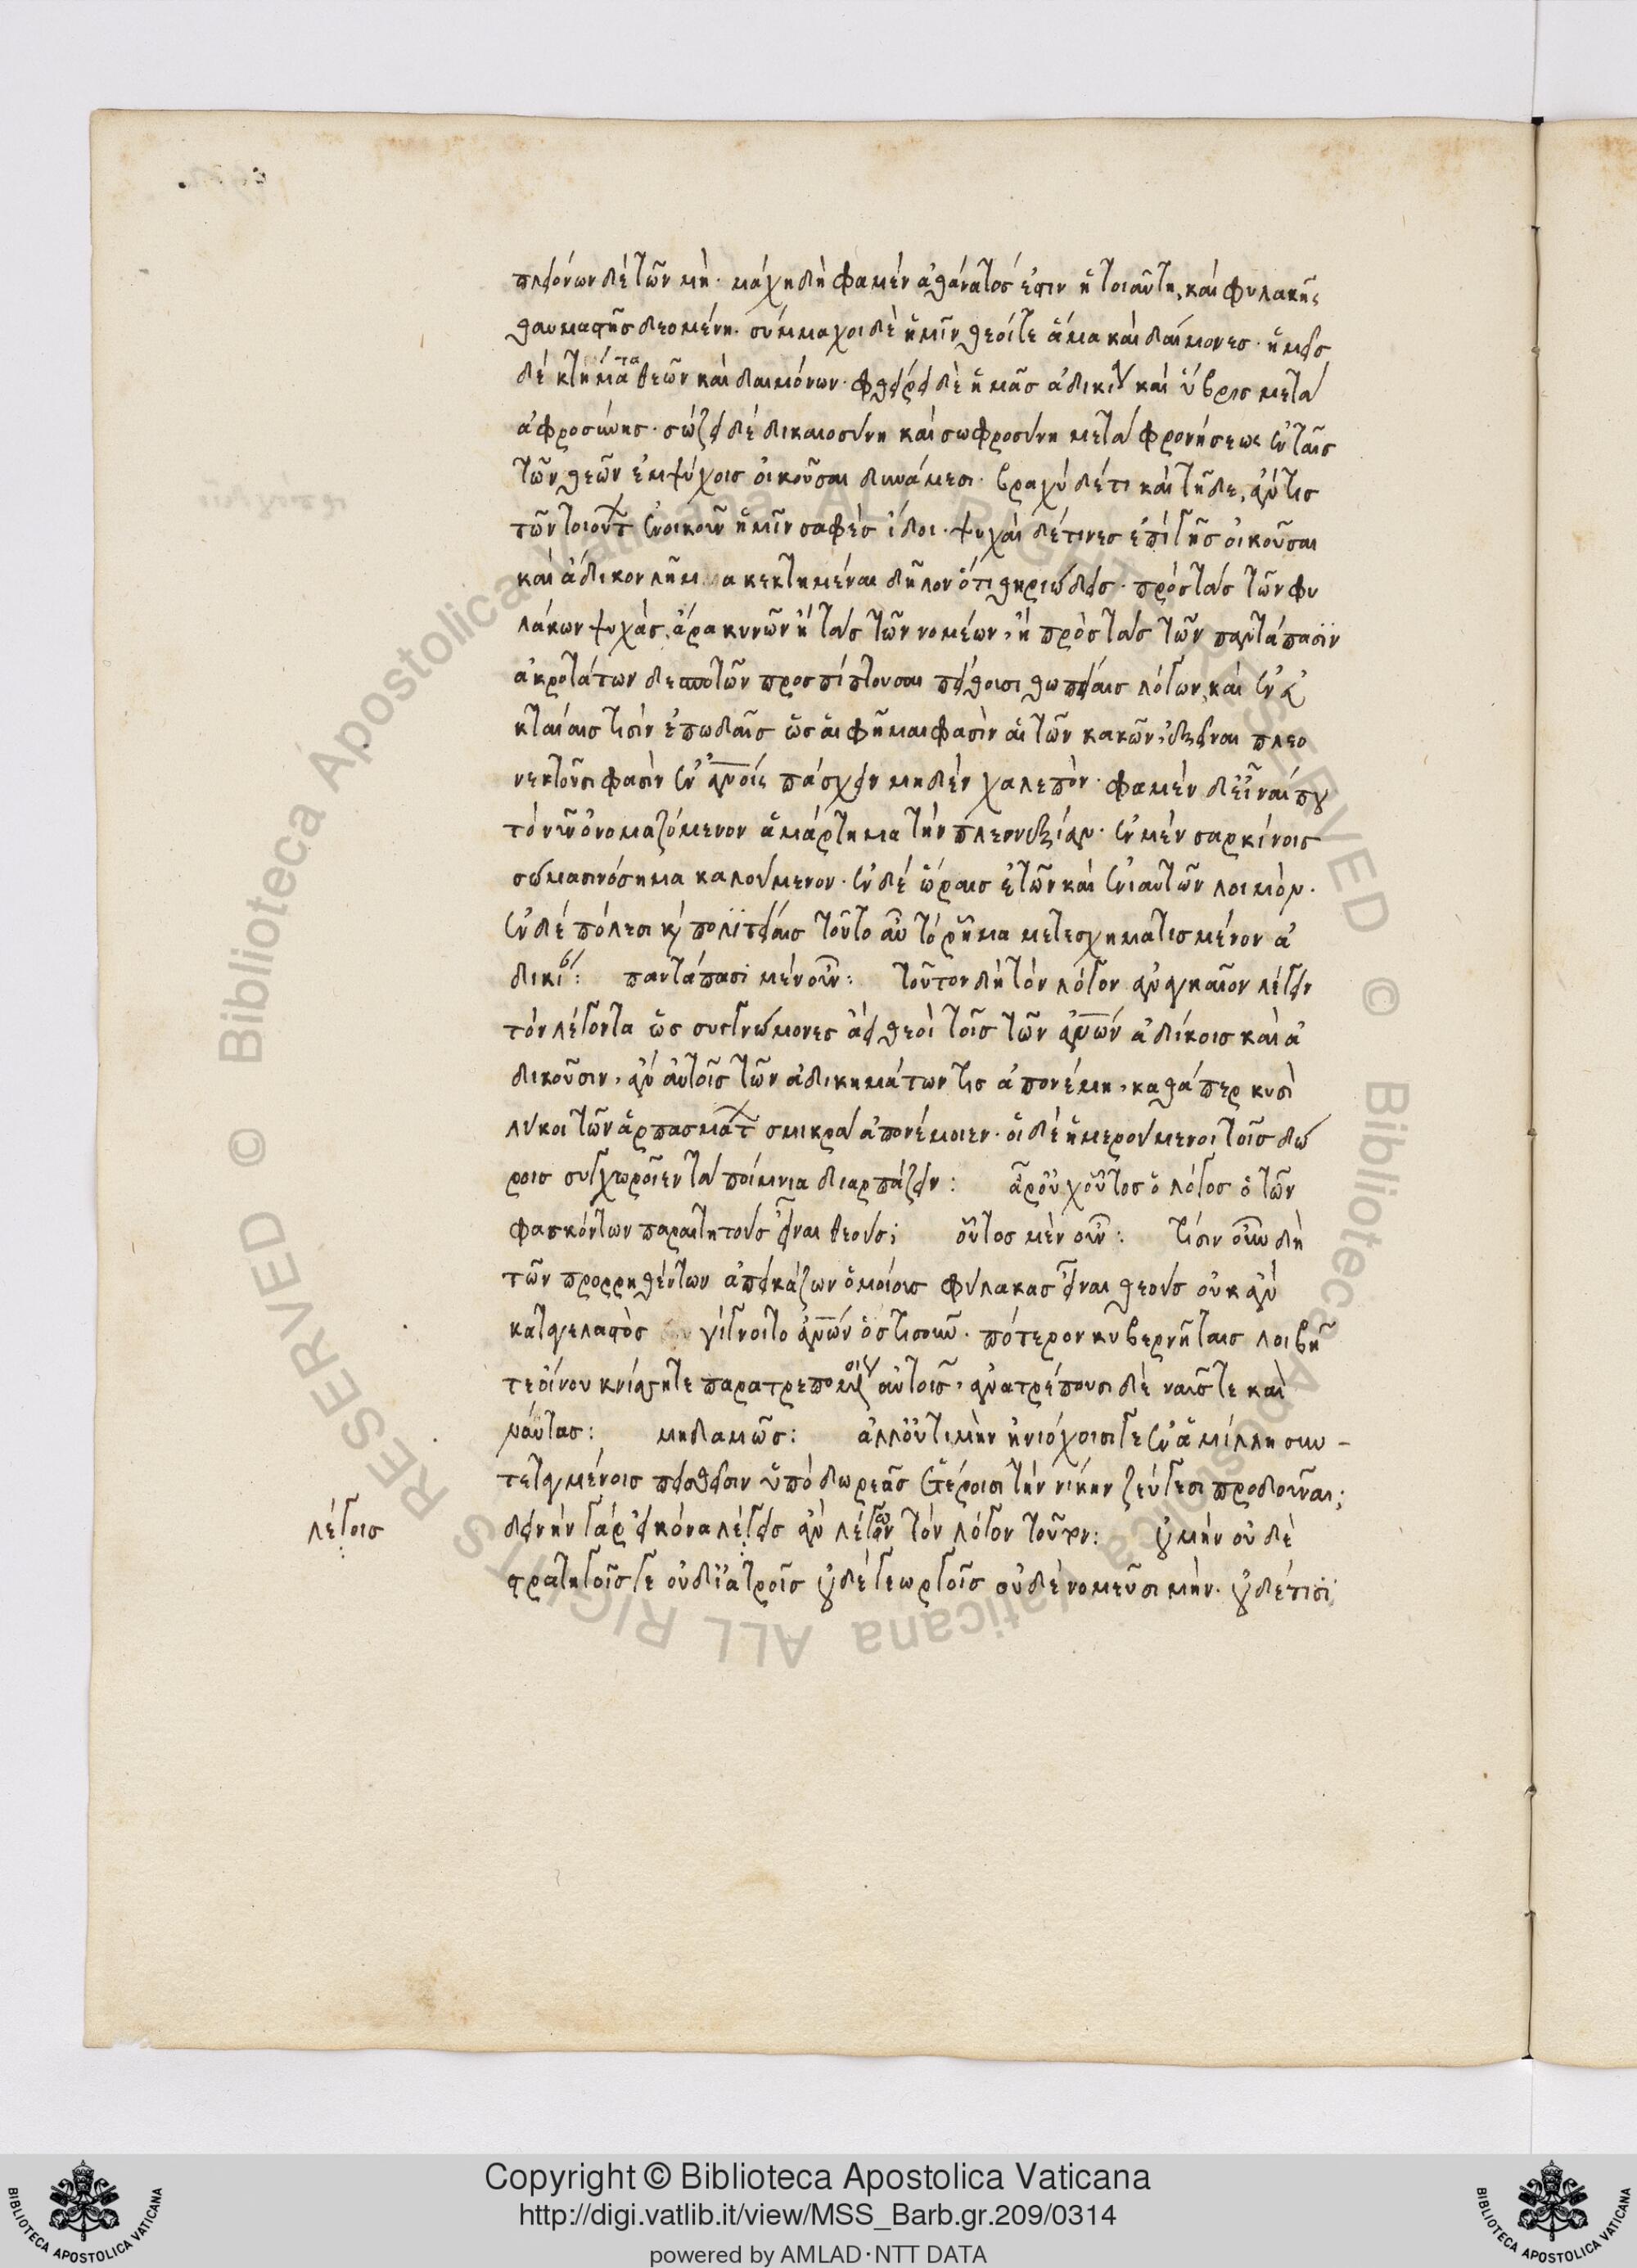 πλειόνων δὲ τῶν μή· μάχη δὴ φαμὲν ἀθάνατός ἐστιν ἡ τοιαύτη, καὶ φυλακῆς
θαυμαστῆς δεομένη· σύμμαχοι δὲ ἡμῖν θεοί τε ἅμα καὶ δαίμονες· ἡμεῖς
δὲ κτήματα θεῶν καὶ δαιμόνων· φθείρει δὲ ἡμᾶς ἀδικία καὶ ὕβρις μετὰ
ἀφροσύνης· σώζει δὲ δικαιοσύνη καὶ σωφροσύνη μετὰ φρονήσεως ἐν ταῖς
τῶν θεῶν ἐμψύχοις οἰκοῦσαι δυνάμεσι· βραχὺ δέ τι καὶ τῆδε, ἄν τις
τῶν τοιούτων ἐνοικοῦν ἡμῖν σαφὲς ἴδοι· ψυχαὶ δέ τινες ἐπὶ γῆς οἰκοῦσαι
καὶ ἄδικον λῆμμα κεκτημέναι δῆλον ὅτι θηριώδεις· πρὸς τὰς τῶν φυ
λάκων ψυχὰς, ἄρα κυνῶν ἢ τὰς τῶν νομέων, ἢ πρὸς τὰς τῶν πανταπασιν
ἀκροτάτων δεσποτῶν προσπίπτουσαι πείθουσι θωπείαις λόγων, καὶ ἐν εὐ
κταίαις τισὶν ἐπωδαῖς ὡς αἱ φῆμαι φασὶν αἱ τῶν κακῶν, ἐξεῖναι πλεο
νεκτοῦσι φασὶν ἐν ἀνοις πάσχειν μηδὲν χαλεπόν· φαμὲν δὲ εἶναί που
τὸ νῦν ὀνομαζόμενον ἁμάρτημα τὴν πλεονεξίαν· ἐν μὲν σαρκίνοις
σώμασι νόσημα καλούμενον· ἐν δὲ ὥραις ἐτῶν καὶ ἐνιαυτῶν λοιμόν·
ἐν δὲ πόλεσι καὶ πολιτείαις τοῦτο αὖ τὸ ῥῆμα μετεσχηματισμένον ἀ
δικί: παντάπασι μὲν οὖν: τοῦτον δὴ τὸν λόγον ἀναγκαῖον λέγειν
τὸν λέγοντα ὡς συγγνώμονες ἀεὶ θεοὶ τοῖς τῶν ἀνων ἀδίκοις καὶ ἀ
δικοῦσιν, ἂν αὐτοῖς τῶν ἀδικημάτων τις ἀπονέμη, καθάπερ κυσὶ
λύκοι τῶν ἁρπασμάτων σμικρὰ ἀπονέμοιεν· οἱ δὲ ἡμερούμενοι τοῖς δώ
ροις συγχωροῖεν τὰ ποίμνια διαρπάζειν: ἆρ' οὐχ οὗτος ὁ λόγος ὁ τῶν
φασκόντων παραιτητοὺς εἶναι θεούς; οὗτος μὲν οὖν: τίσιν οὖν δὴ
τῶν προρρηθέντων ἀπεικάζων ὁμοίοις φύλακας εἶναι θεοὺς οὐκ ἂν
καταγέλαστος γίγνοιτο ἀνων ὁστισοῦν· πότερον κυβερνήταις λοιβῆ
τε οἴνου κνίσῃ τε παρατρεπομεν αὐτοῖς, ἀνατρέπουσι δὲ ναῦς τε καὶ
ναύτας: μηδαμῶς: ἀλλ' οὔτι μὴν ἡνιόχοισί γε ἐν ἁμίλλη συν-
τεταγμένοις πεισθεῖσιν ὑπὸ δωρεᾶς ἑτέροισι τὴν νίκην ζεύγεσι προδοῦναι;
δεινὴν γὰρ εἰκόνα λέγεις ἂν λέγων τὸν λόγον τοῦτον: οὐ μὴν οὐδὲ
λέγοις
στρατηγοῖς γε οὐδ' ἰατροῖς οὐδὲ γεωργοῖς οὐδὲ νομεῦσι μήν· οὐδέ τισι
Copyright © Biblioteca Apostolica Vaticana
http://digi.vatlib.it/view/MSS_Barb.gr.209/0314
powered by AMLAD·NTT DATA